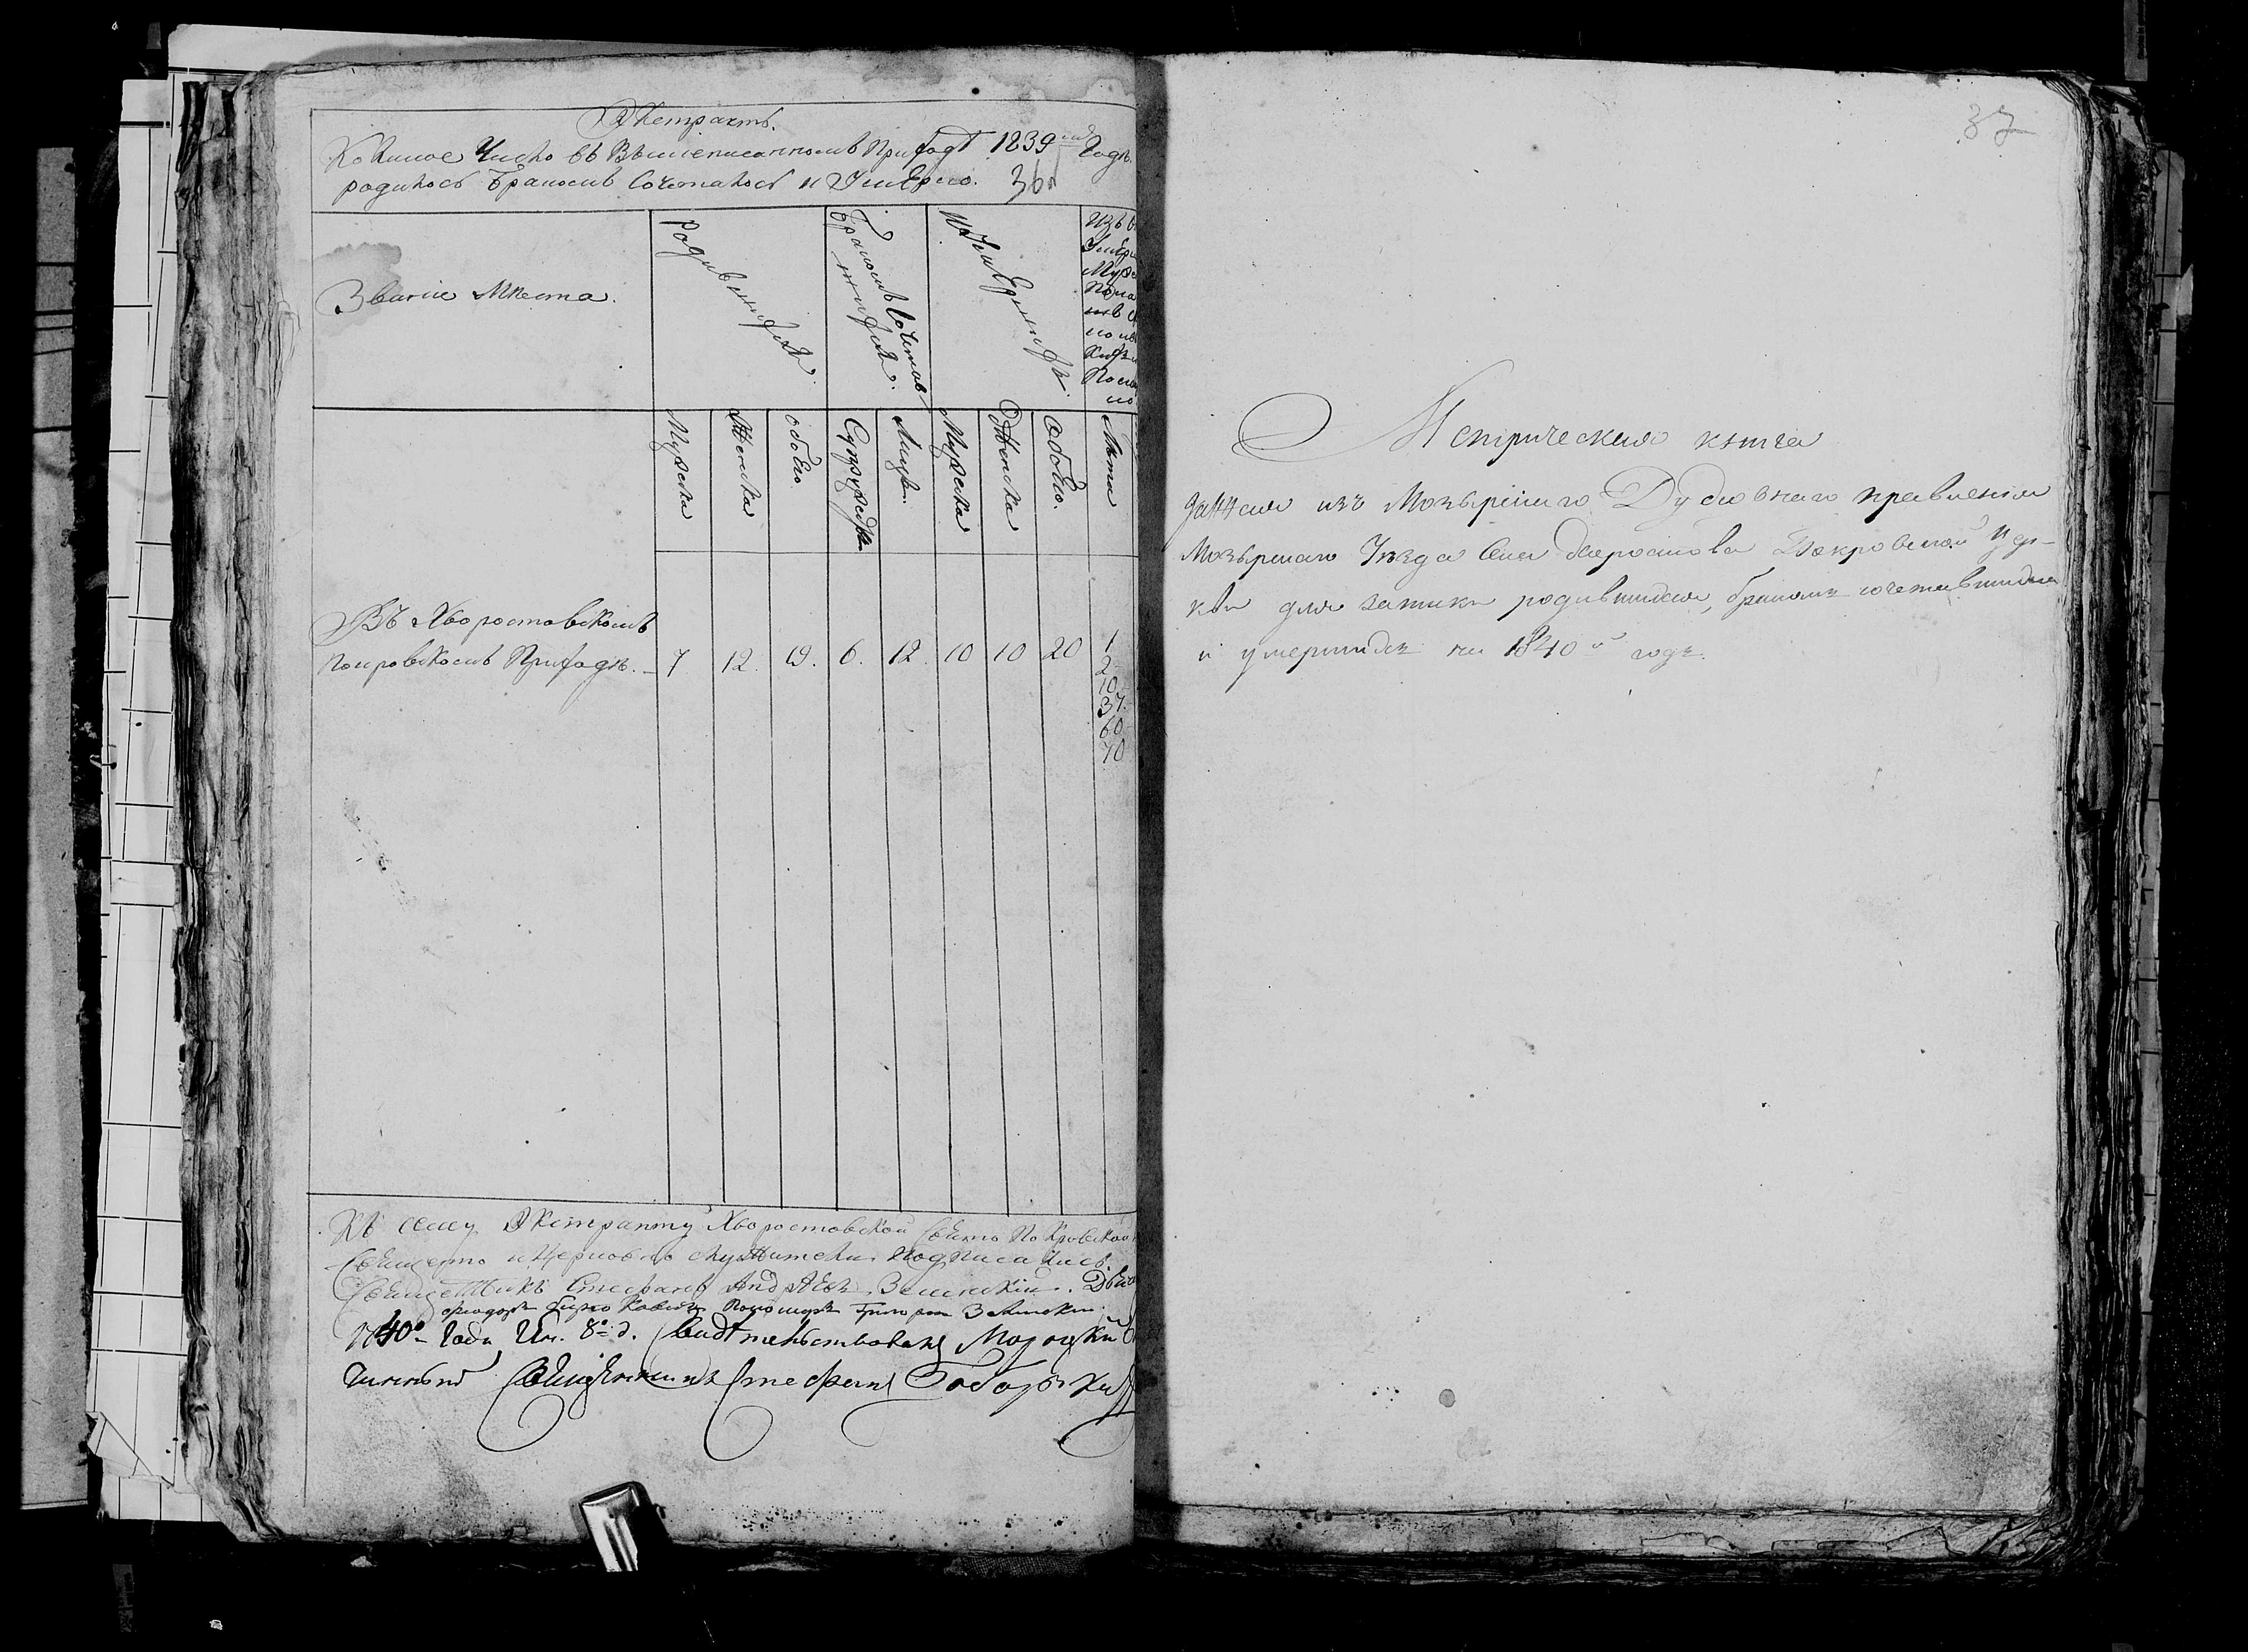 Экстрактъ.
Коликое Число въ Вышеписанномъ Приходѣ 1839го Годѣ.
родилось Бракомъ Сочеталось и Умѣрло. 36 п
Званіе Мѣста.
Родившихся.
Бракомъ Сочетавшихся.
Умѣршихъ.
Изъ
Умѣр
Муже
По
но
Мужеска
Женска
Обоего
Супружествъ
Лицъ.
Мужеска
Женска
Обоего.
Лѣта
Въ Хворостовскомъ
Покровскомъ Приходѣ. 7. 12. 19. 6. 12. 10 10 20 1
2
10
37.
60
70
Къ сему Экстракту Хворостовской Свято Покровской
Священно и Церковно служители Подписались.
Священникъ Стефанъ Андрѣевъ Зелинскій.
Пономаръ Григорій Зелинскій.
1840о Года, 8о д. Свидѣтельствовалъ Мороцкій
Чинный Священникъ Стефанъ
37
Метрическая книга
данная изъ Мозырскаго Духовнаго правленія
Мозырскаго Уѣзда Села Хворостова Покровской Цер-
кви для записки родившихся, бракомъ сочетавшихся
и умершихъ на 1840й годъ.